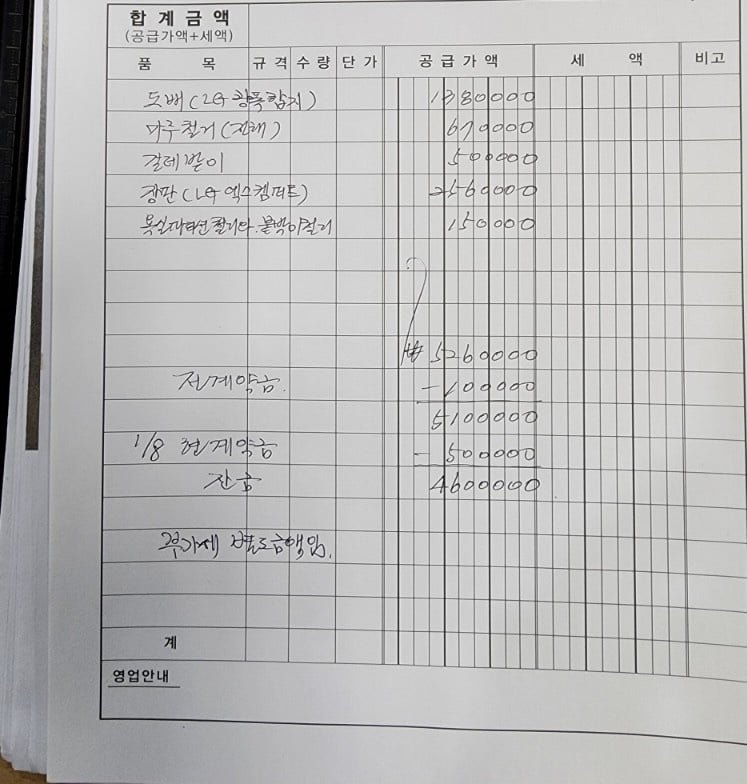 합계금액
(공급가액+세액)
품 목 규격 수량 단가 공급가액 세 액 비고
도배(LG 광폭합지) 1380000
마루철거(전체) 670000
걸레받이 500000
장판(LG 엑스컴퍼트) 2560000
욕실 철거 붙박이철거 150000
₩ 5260000
전계약금. -100000
5100000
1/8 현계약금 - 500000
잔금 4600000
부가세 별도금액임.
계
영업안내